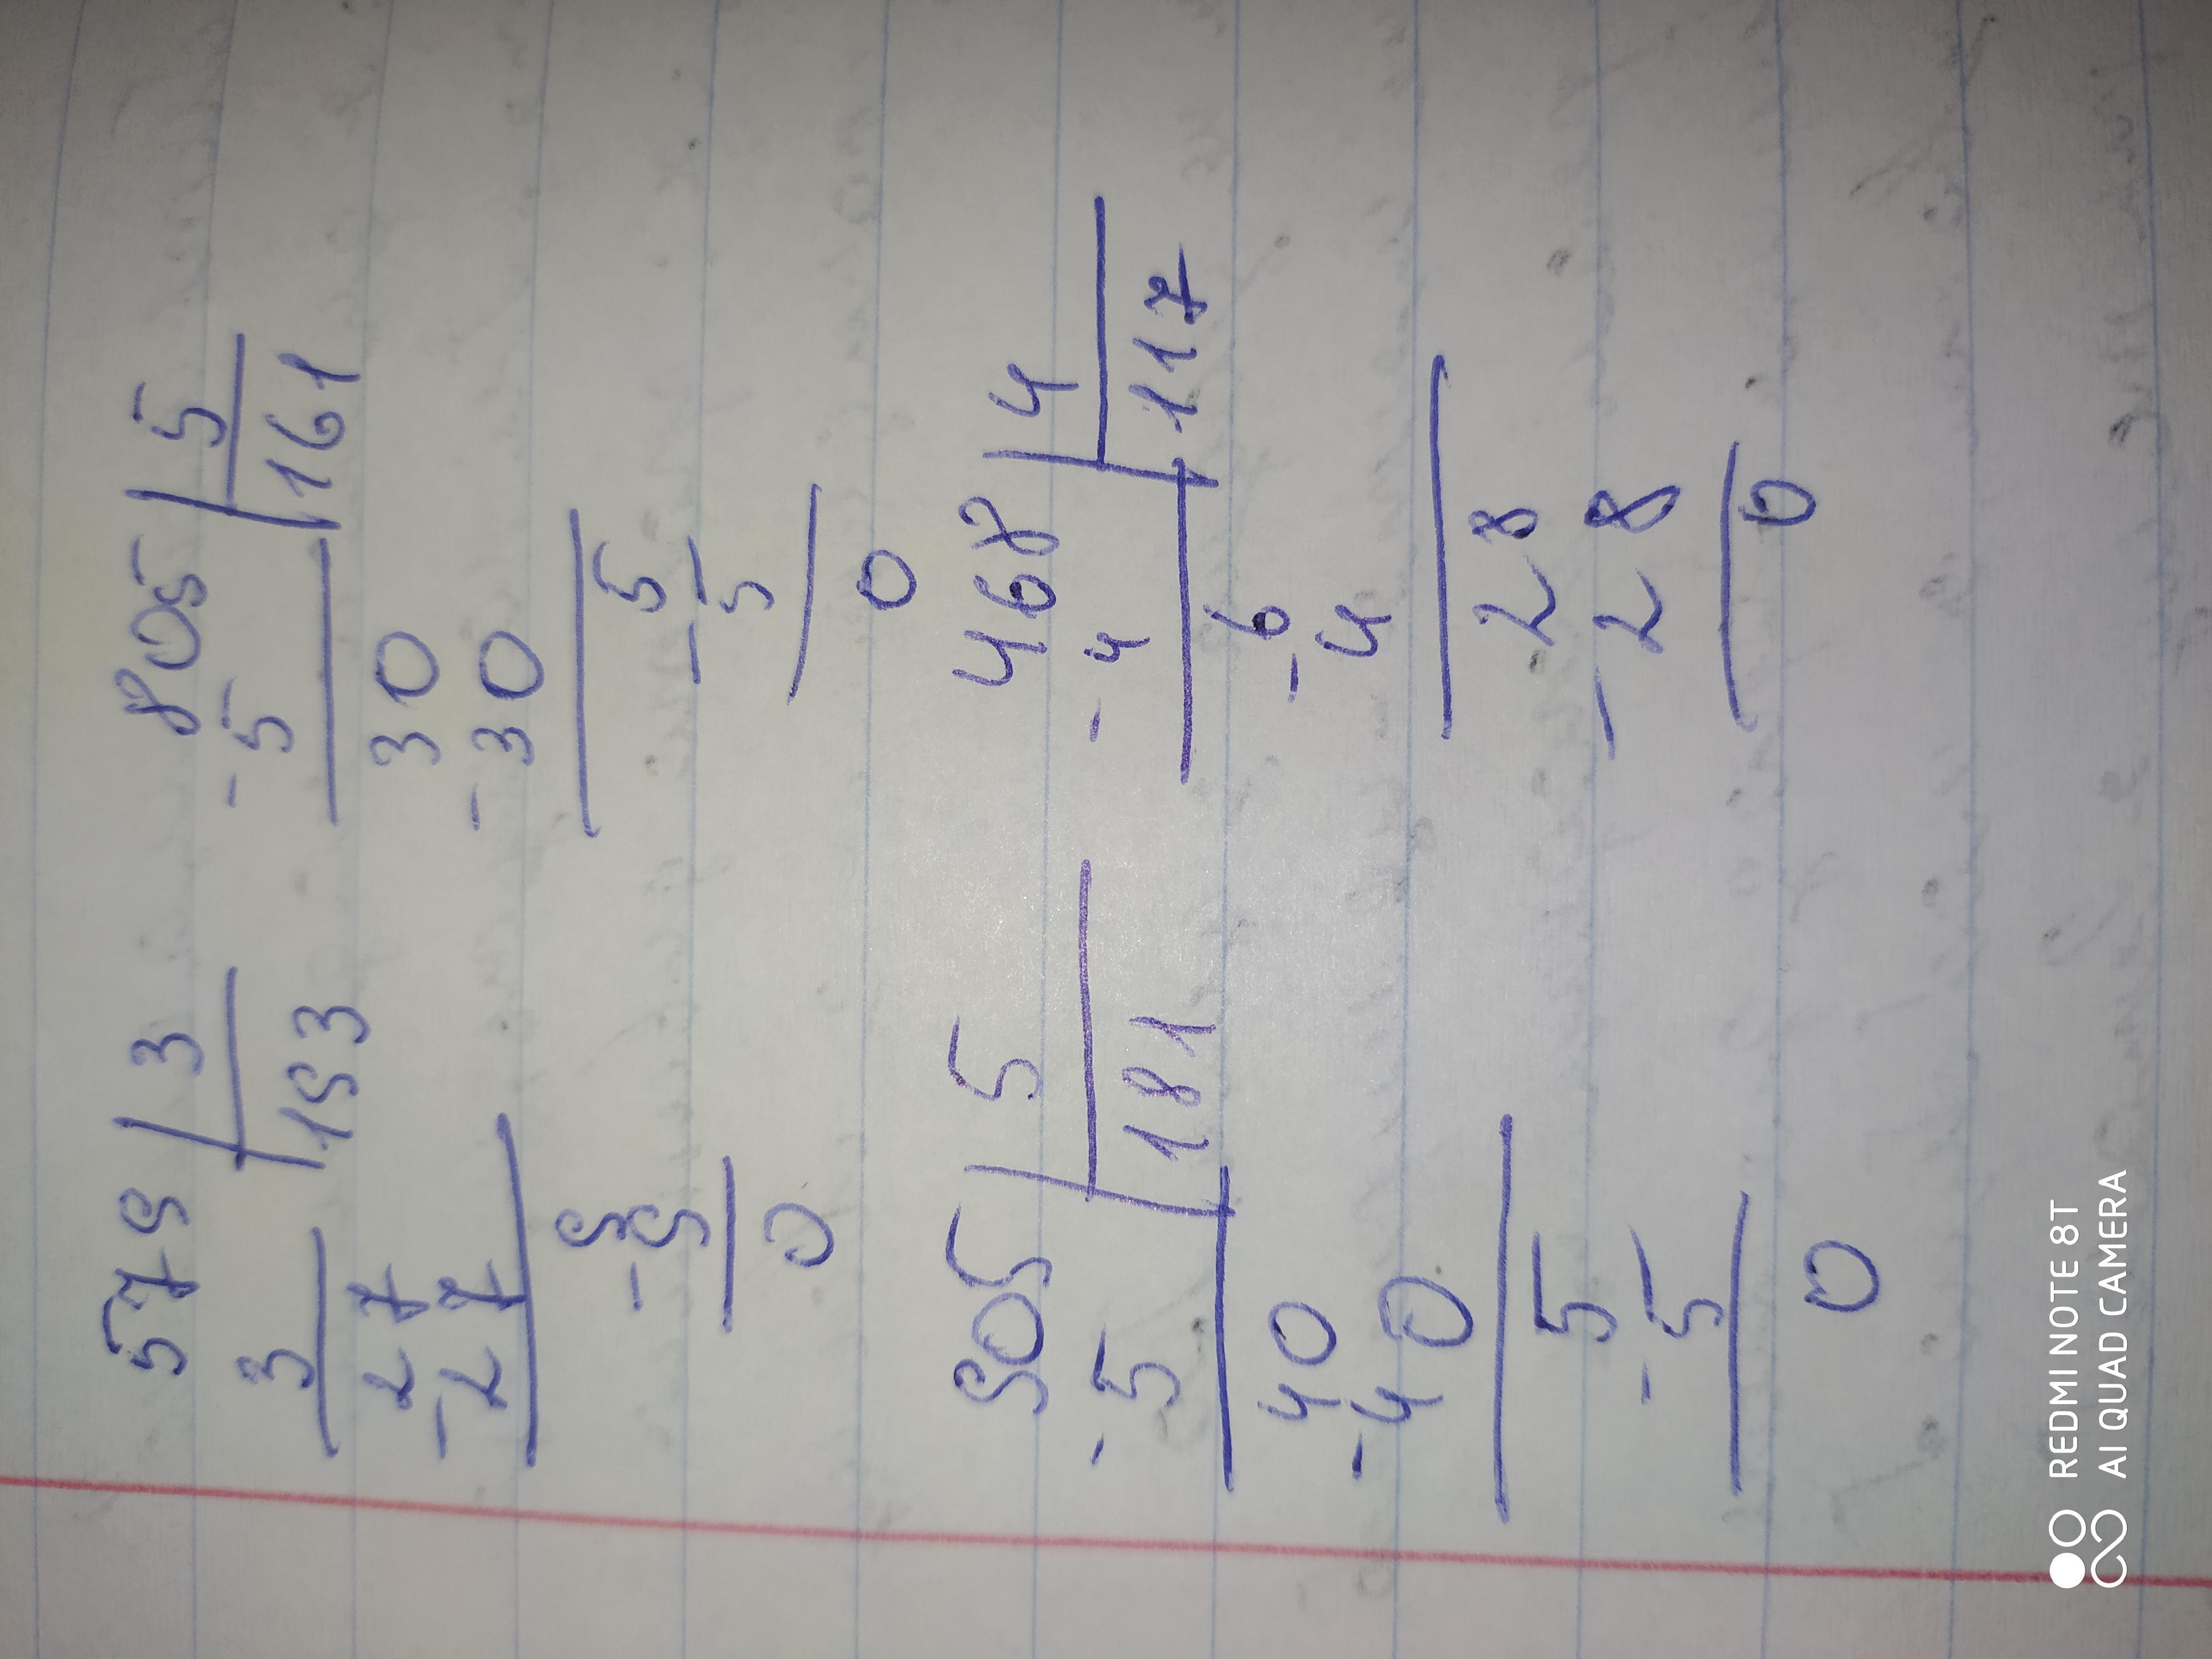 579 | 3
3 193
27
-27
9
-9
0
805 | 5
-5 161
30
-30
5
-5
0
905 | 5
-5 181
40
-40
5
-5
0
468 | 4
-4 117
6
-4
28
-28
0
REDMI NOTE 8T
AI QUAD CAMERA